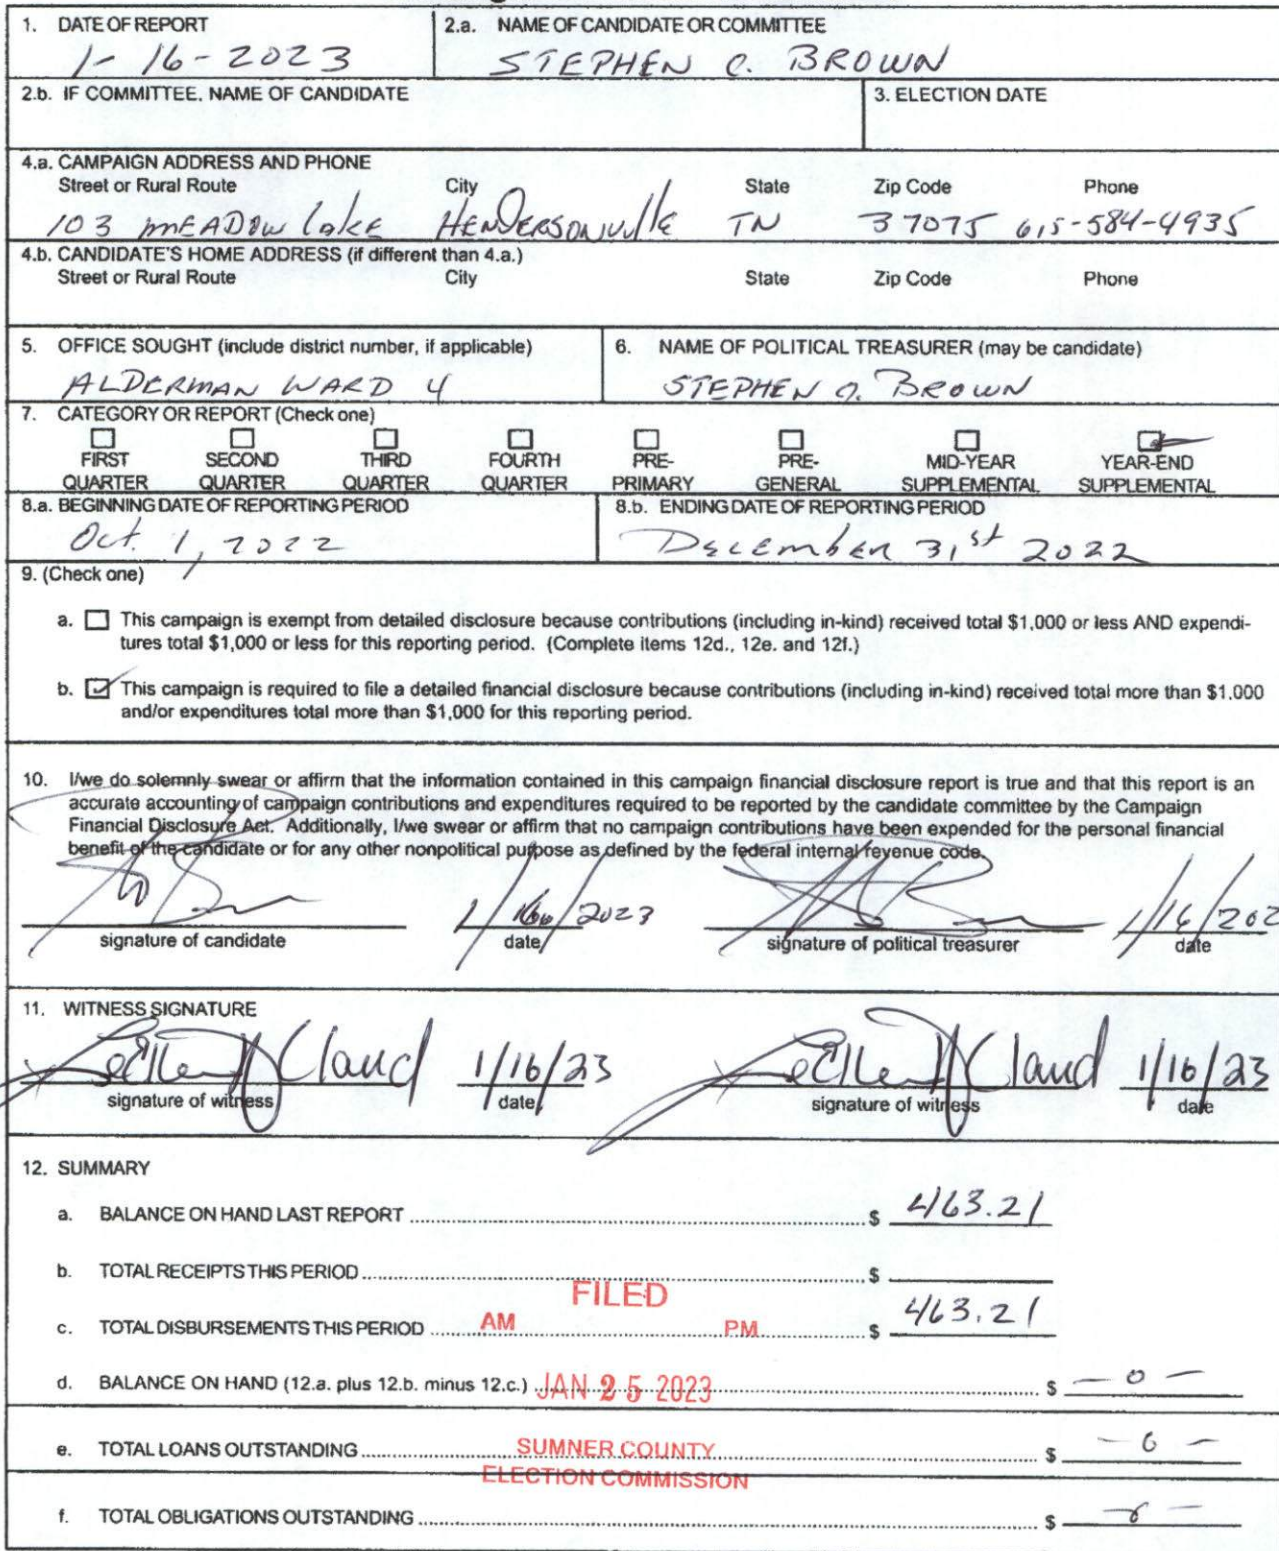 1. DATE OF REPORT
1-16-2023
2.a. NAME OF CANDIDATE OR COMMITTEE
STEPHEN C. BROWN
2.b. IF COMMITTEE, NAME OF CANDIDATE
3. ELECTION DATE
4.a. CAMPAIGN ADDRESS AND PHONE
Street or Rural Route City State Zip Code Phone
103 MEADOW LAKE HENDERSONVILLE TN 37075 615-584-4935
4.b. CANDIDATE'S HOME ADDRESS (if different than 4.a.)
Street or Rural Route City State Zip Code Phone
5. OFFICE SOUGHT (include district number, if applicable)
ALDERMAN WARD 4
6. NAME OF POLITICAL TREASURER (may be candidate)
STEPHEN C. BROWN
7. CATEGORY OR REPORT (Check one)
FIRST QUARTER
SECOND QUARTER
THIRD QUARTER
FOURTH QUARTER
PRE-PRIMARY
PRE-GENERAL
MID-YEAR SUPPLEMENTAL
YEAR-END SUPPLEMENTAL
8.a. BEGINNING DATE OF REPORTING PERIOD
Oct. 1, 2022
8.b. ENDING DATE OF REPORTING PERIOD
December 31st 2022
9. (Check one)
a. This campaign is exempt from detailed disclosure because contributions (including in-kind) received total $1,000 or less AND expendi-
tures total $1,000 or less for this reporting period. (Complete items 12d., 12e. and 12f.)
b. This campaign is required to file a detailed financial disclosure because contributions (including in-kind) received total more than $1,000
and/or expenditures total more than $1,000 for this reporting period.
10. I/we do solemnly swear or affirm that the information contained in this campaign financial disclosure report is true and that this report is an
accurate accounting of campaign contributions and expenditures required to be reported by the candidate committee by the Campaign
Financial Disclosure Act. Additionally, I/we swear or affirm that no campaign contributions have been expended for the personal financial
benefit of the candidate or for any other nonpolitical purpose as defined by the federal internal revenue code.
1/16/2023 1/16/202
signature of candidate date signature of political treasurer date
11. WITNESS SIGNATURE
Cloud 1/16/23 Cloud 1/16/23
signature of witness date signature of witness date
12. SUMMARY
a. BALANCE ON HAND LAST REPORT $ 463.21
b. TOTAL RECEIPTS THIS PERIOD $
FILED
c. TOTAL DISBURSEMENTS THIS PERIOD AM PM $ 463.21
d. BALANCE ON HAND (12.a. plus 12.b. minus 12.c.) JAN 25 2023 $ -0-
e. TOTAL LOANS OUTSTANDING SUMNER COUNTY $ -0-
ELECTION COMMISSION
f. TOTAL OBLIGATIONS OUTSTANDING $ -0-